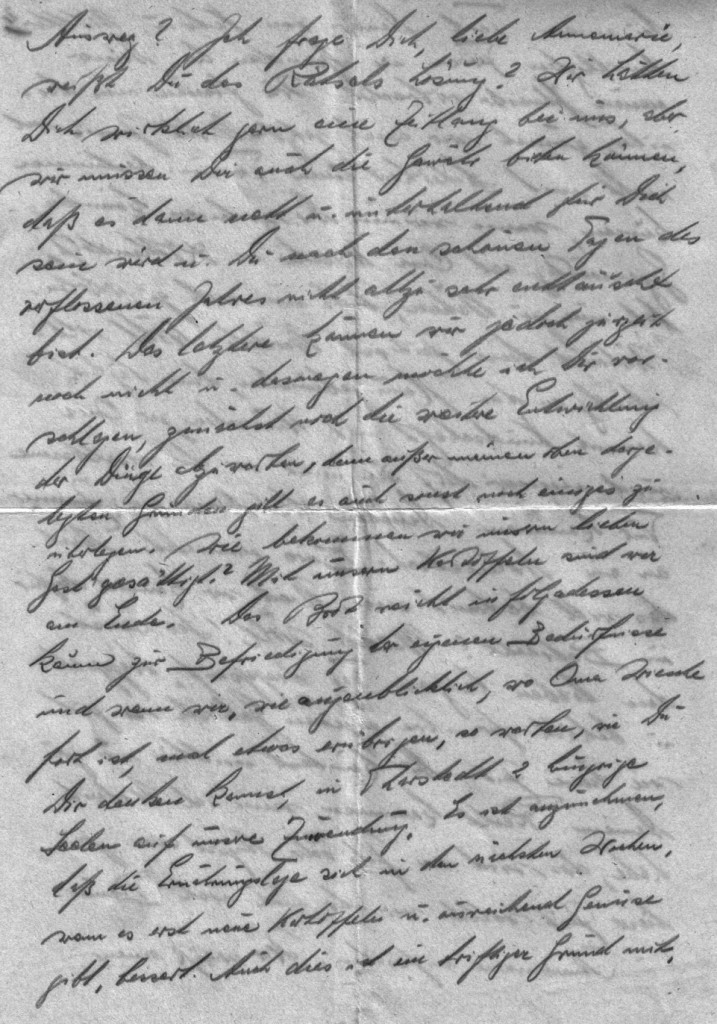 Ausweg? Ich frage Dich, liebe Annemarie,
weißt Du des Rätsels Lösung? Wir hätten
Dich wirklich gern eine Zeitlang bei uns, aber
wir müssen Dir auch die Gewähr bieten können,
daß es dann nett u. unterhaltend für Dich
sein wird u. Du nach den schönen Tagen des
verflossenen Jahres nicht allzu sehr enttäuscht
bist. Das letztere können wir jedoch zurzeit
noch nicht u. deswegen möchte ich Dir vor-
schlagen, zunächst noch die weitere Entwicklung
der Dinge abzuwarten, denn außer meinen oben darge-
legten Gründen gilt es auch sonst noch einiges zu
überlegen. Wie bekommen wir unsern lieben
Gast gesättigt? Mit unsern Kartoffeln sind wir
am Ende. Das Brot reicht infolgedessen
kaum zur Befriedigung der eigenen Bedürfnisse
und wenn wir, wie augenblicklich, wo Oma
fort ist, mal etwas erübrigen, so warten, wie Du
Dir denken kannst, in 2 hungrige
Seelen auf unsre Zuwendung. Es ist anzunehmen,
daß die Ernährungslage sich in den nächsten Wochen,
wenn es erst neue Kartoffeln u. ausreichend Gemüse
gibt, bessert. Auch dies ist ein triftiger Grund mit,